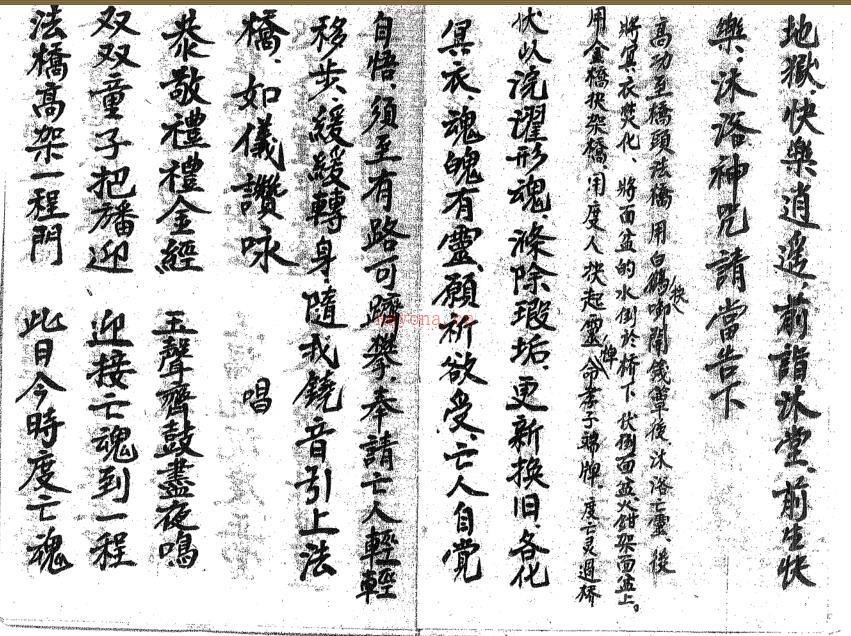 地獄、快樂逍遥、前詣沐堂、前生快
樂、沐浴神咒請當告下
高功至橋頭法橋用白鶴咖開錢章後、沐浴亡靈、後
將冥衣焚化、將面盆的水倒於桥下 伏倒面盆火鉗架面盆上。
用金橋扶架橋、用度人 扶起靈牌 命孝子端牌 度亡灵過桥
伏以浣濯形魂、滌除瑕垢、更新换旧、各化
冥衣、魂魄有靈、願祈欲受、亡人自覚
自悟、須至有路可躋攀、奉請亡人輕輕
移步、緩緩轉身、隨我鐃音引上法
橋、如儀讚咏 唱
恭敬禮禮金經 玉聲齊鼓盡夜鳴
双双童子把旛迎 迎接亡魂到一程
法橋高架一程門 此日今時度亡魂